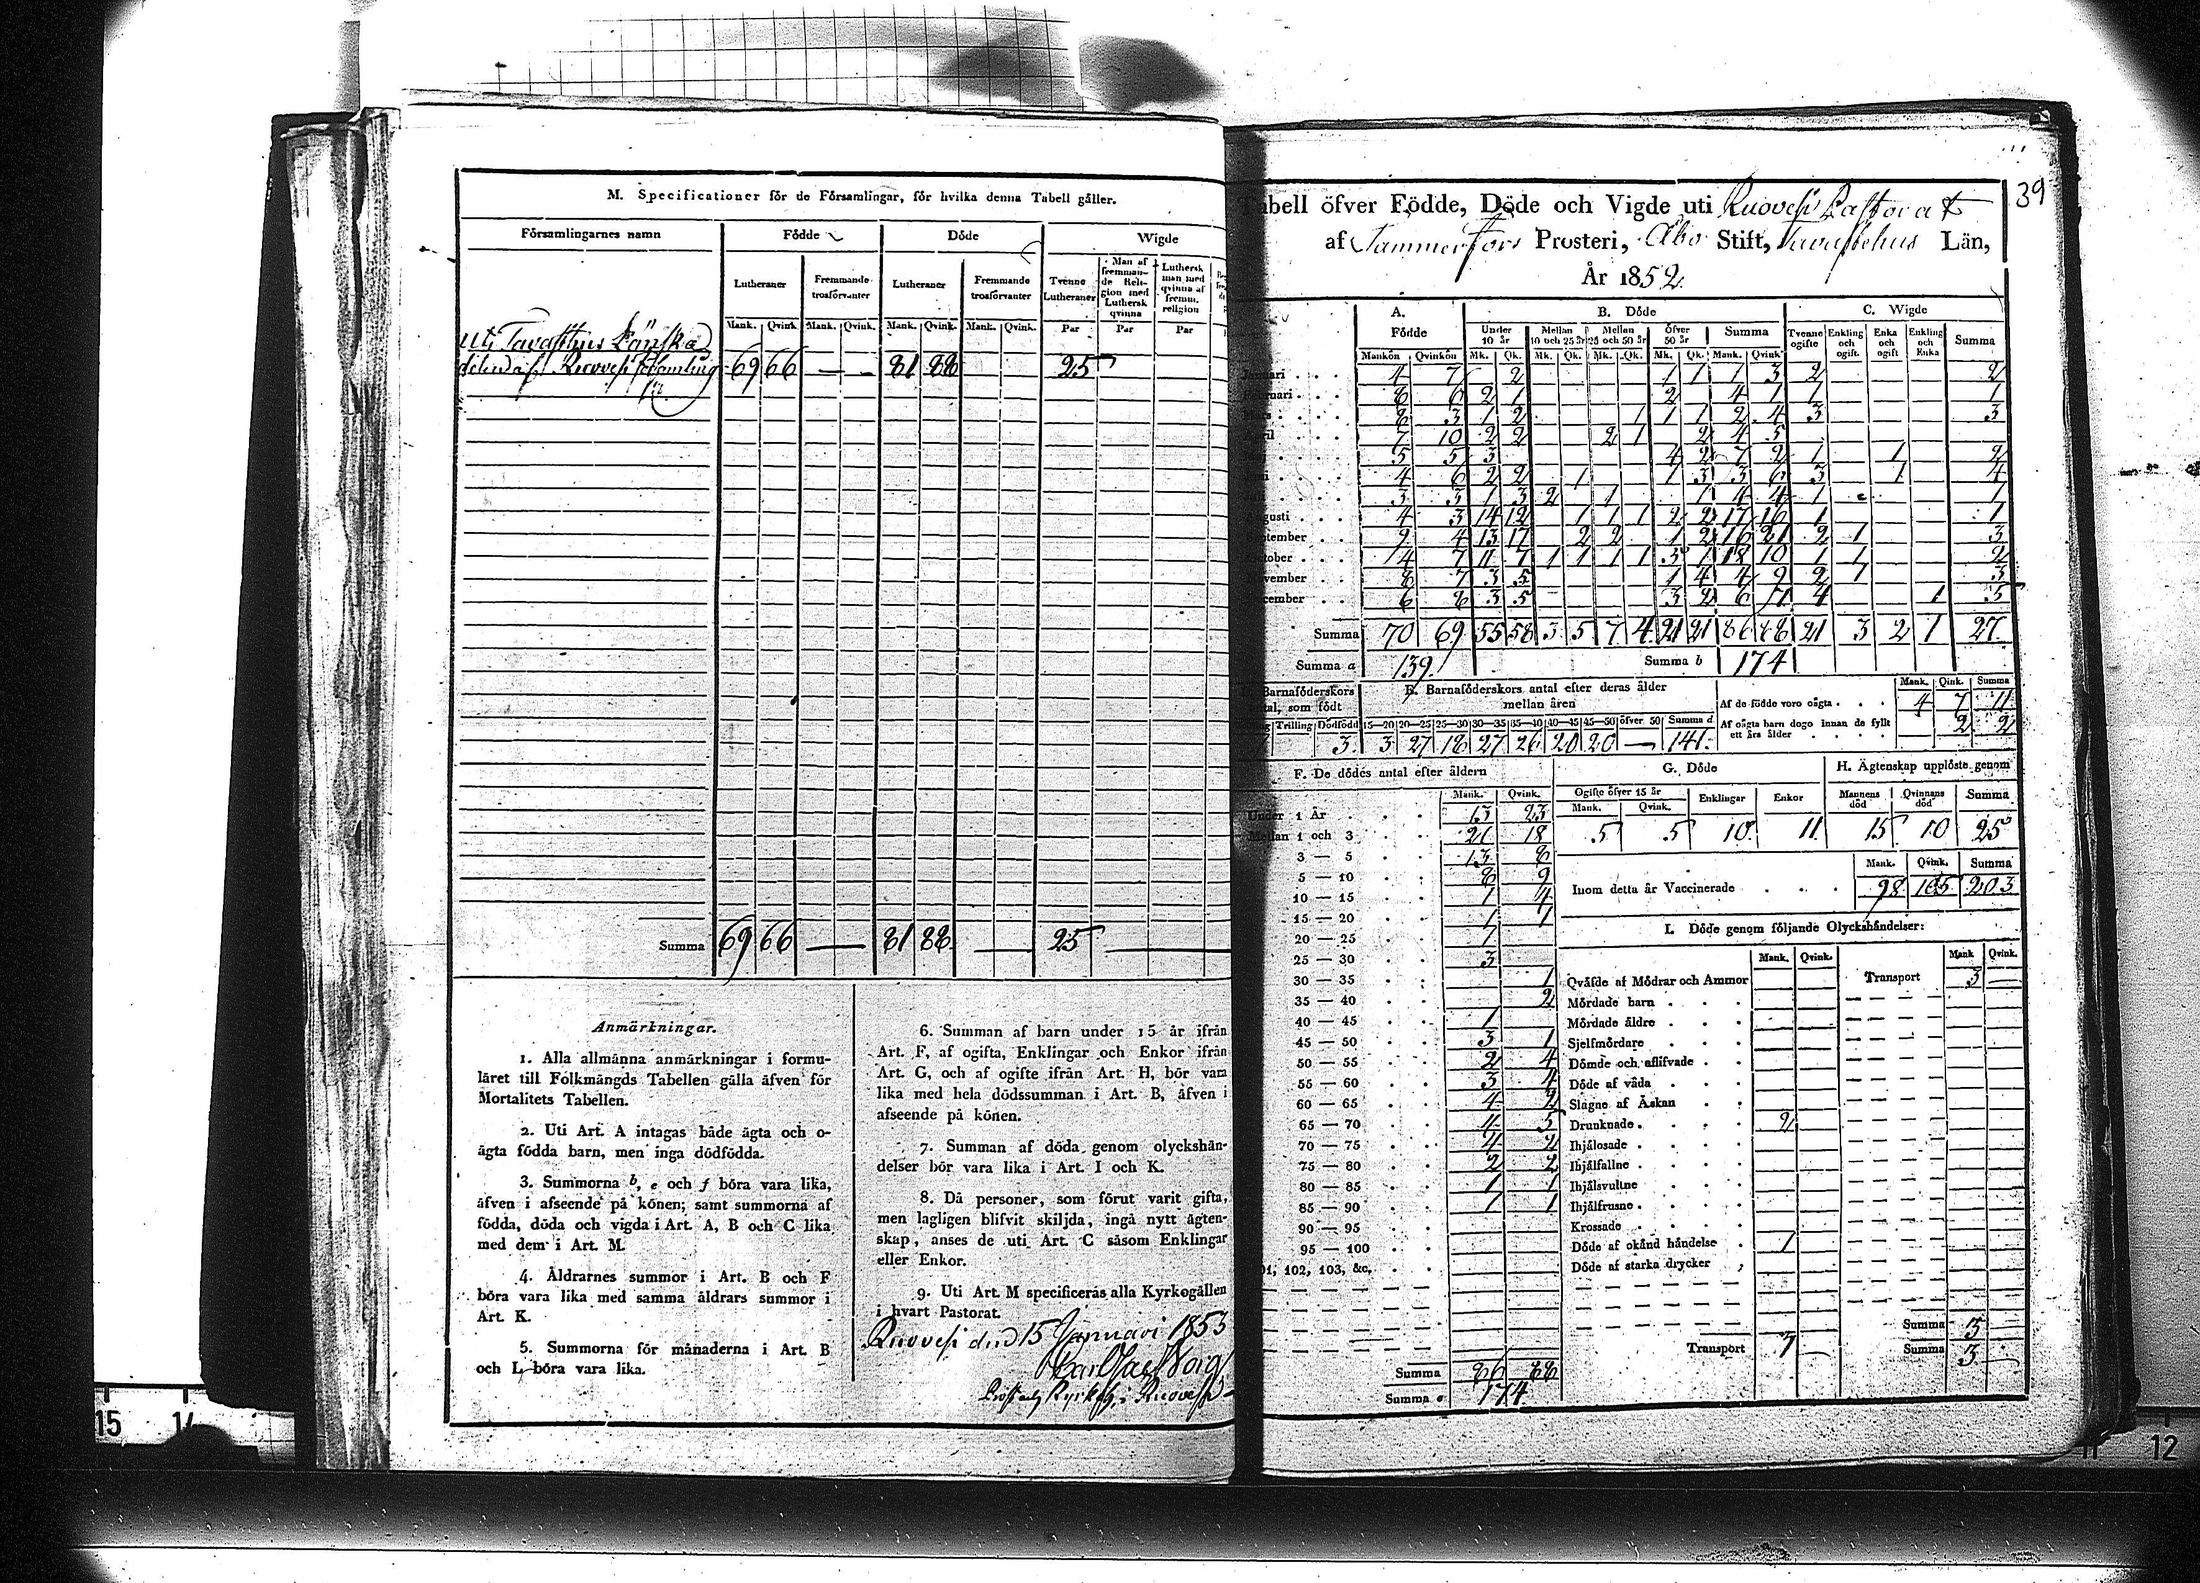 M. Specificationer för de Församlingar, för hvilka denna Tabell gäller.
Församlingarnes namn Födde Döde Wigde
Lutheraner Fremmande trosförvanter Lutheraner Fremmande trosförvanter Tvenne Lutheraner Man af fremmande Religion med Luthersk qvinna Luthersk man med qvinna af fremm. religion
Mank. Qvink. Mank. Qvink. Mank. Qvink. Mank. Qvink. Par Par Par
Uti Tavasthus Länska
delen af Ruovesi 69 66 — — 81 88 25
Summa 69 66 — 81 88 — 25 —
Anmärkningar.
1. Alla allmänna anmärkningar i formu-
läret till Folkmängds Tabellen gälla äfven för
Mortalitets Tabellen.
2. Uti Art. A intagas både ägta och o-
ägta födda barn, men inga dödfödda.
3. Summorna b, e och f böra vara lika,
äfven i afseende på könen; samt summorna af
födda, döda och vigda i Art. A, B och C lika
med dem i Art. M.
4. Åldrarnes summor i Art. B och F
böra vara lika med samma åldrars summor i
Art. K.
5. Summorna för månaderna i Art. B
och L böra vara lika.
6. Summan af barn under 15 år ifrån
Art. F, af ogifta, Enklingar och Enkor ifrån
Art. G, och af ogifte ifrån Art. H, bör vara
lika med hela dödssumman i Art. B, äfven i
afseende på könen.
7. Summan af döda genom olyckshän-
delser bör vara lika i Art. I och K.
8. Då personer, som förut varit gifta,
men lagligen blifvit skiljda, ingå nytt ägten-
skap, anses de uti Art. C såsom Enklingar
eller Enkor.
9. Uti Art. M specificeras alla Kyrkogällen
i hvart Pastorat.
Ruovesi d. 15 Januari 1853
39
Tabell öfver Födde, Döde och Vigde uti Ruovesi Pastorat
af Tammerfors Prosteri, Åbo Stift, Tavastehus Län,
År 1852.
A. Födde B. Döde C. Wigde
Under 10 år Mellan 10 och 25 år Mellan 25 och 50 år Öfver 50 år Summa Tvenne ogifte Enkling och ogift. Enka och ogift Enkling och Enka Summa
Mankön Qvinkön Mk. Qk. Mk. Qk. Mk. Qk. Mk. Qk. Mank. Qvink.
Januari 4 7 2 1 1 1 3 2 2
Februari 8 6 2 1 2 4 1 1 1
Mars 8 3 1 2 1 1 1 2 4 3 3
April 7 10 2 2 2 1 2 4 5
5 5 3 4 2 7 2 1 1 2
4 6 2 2 1 1 3 3 6 3 1 4
3 3 1 3 2 1 1 4 4 1 1
Augusti 4 3 14 12 1 1 1 2 2 17 16 1 1
September 9 4 13 17 2 2 1 2 16 21 2 1 3
October 4 7 11 7 1 1 1 1 5 1 18 10 1 1 2
November 8 7 3 5 1 4 4 9 2 1 3
December 6 8 3 5 3 2 6 7 4 1 5
Summa 70 69 55 58 3 5 7 4 21 21 86 88 21 3 2 1 27
Summa a 139 Summa b 174
Barnaföderskors
tal, som födt
Trilling Dödfödd
3
E. Barnaföderskors antal efter deras ålder
mellan åren
15—20 20—25 25—30 30—35 35—40 40—45 45—50 öfver 50 Summa d
3 27 18 27 26 20 20 — 141
Mank. Qink. Summa
Af de födde voro oägta 4 7 11
Af oägta barn dogo innan de fyllt
ett års ålder 2 2
F. De dödes antal efter åldern
Mank. Qvink.
Under 1 År 13 23
Mellan 1 och 3 21 18
3 — 5 13 8
5 — 10 8 9
10 — 15 1 4
15 — 20 1 1
20 — 25 1
25 — 30 3
30 — 35 1
35 — 40 2
40 — 45 1
45 — 50 3 1
50 — 55 2 4
55 — 60 3 4
60 — 65 4 2
65 — 70 4 5
70 — 75 4 2
75 — 80 2 2
80 — 85 1 1
85 — 90 1 1
90 — 95
95 — 100
101, 102, 103, &c.
Summa 86 88
Summa e 174
G. Döde
Ogifte öfver 15 år Enklingar Enkor
Mank. Qvink.
5 5 10 11
H. Ägtenskap upplöste genom
Mannens död Qvinnans död Summa
15 10 25
Mank. Qvink. Summa
Inom detta år Vaccinerade 98 105 203
I. Döde genom följande Olyckshändelser:
Mank. Qvink. Mank Qvink.
Qväfde af Mödrar och Ammor Transport 3 —
Mördade barn
Mördade äldre
Sjelfmördare
Dömde och aflifvade
Döde af våda
Slagne af Åskan
Drunknade 2
Ihjälosade
Ihjälfallne
Ihjälsvultne
Ihjälfrusne
Krossade
Döde af okänd händelse 1
Döde af starka drycker
Transport 3 —
Summa 3
Summa 3 —
15 14 11 12